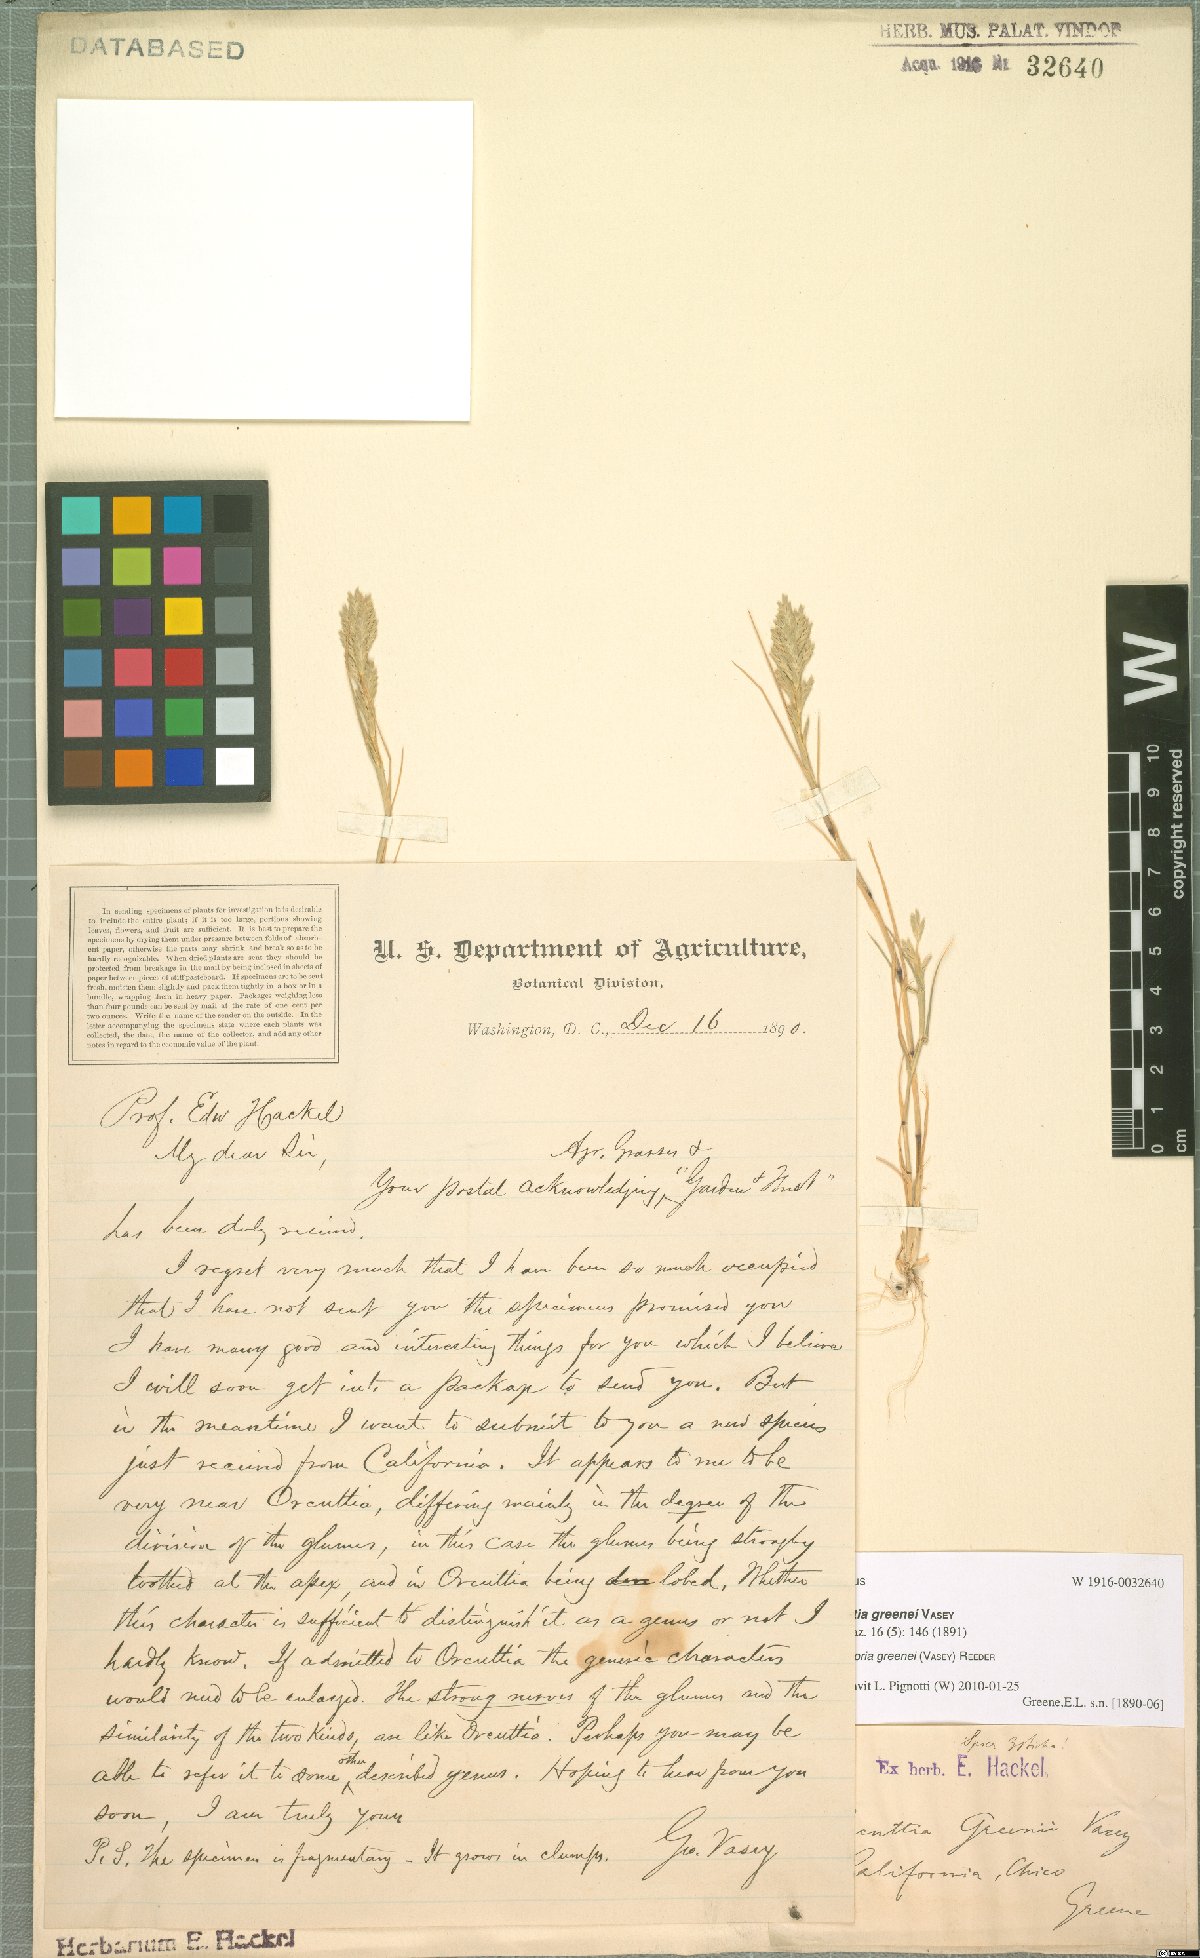 DATABASED
HERB. MUS. PALAT. VINDOB
Acqu. 1916 Nr 32640
W
0 1 2 3 4 5 6 7 8 9 10
cm
copyright reserved
In sending specimens of plants for investigation it is desirable
to include the entire plant; if it is too large, portions showing
leaves, flowers, and fruit are sufficient. It is best to prepare the
specimens by drying them under pressure between folds of absorb-
ent paper, otherwise the parts may shrink and break so as to be
hardly recognizable. When dried plants are sent they should be
protected from breakage in the mail by being inclosed in sheets of
paper between pieces of stiff pasteboard. If specimens are to be sent
fresh, moisten them slightly and pack them tightly in a box or in a
bundle, wrapping them in heavy paper. Packages weighing less
than four pounds can be sent by mail at the rate of one cent per
two ounces. Write the name of the sender on the outside. In the
letter accompanying the specimens state where each plants was
collected, the date, the name of the collector, and add any other
notes in regard to the economic value of the plant.
U. S. Department of Agriculture,
Botanical Division,
Washington, D. C., Dec 16 1890.
Prof. Edw Hackel
My dear Sir,
Agr. Grasses &
Your postal acknowledging "Garden & Forest"
has been duly received.
I regret very much that I have been so much occupied
that I have not sent you the specimens promised you
I have many good and interesting things for you which I believe
I will soon get into a package to send you. But
in the meantime I want to submit to you a new species
just received from California. It appears to me to be
very near Orcuttia, differing mainly in the degree of the
division of the glumes, in this case the glumes being strongly
toothed at the apex, and in Orcuttia being lobed. Whether
this character is sufficient to distinguish it as a genus or not I
hardly know. If admitted to Orcuttia the generic characters
would need to be enlarged. The strong nerves of the glumes and the
similarity of the two kinds, are like Orcuttia. Perhaps you may be
able to refer it to some other described genus. Hoping to hear from you
soon, I am truly yours
Geo. Vasey
P. S. The specimen is fragmentary - It grows in clumps.
us W 1916-0032640
tia greenei VASEY
az. 16 (5): 146 (1891)
oria greenei (VASEY) REEDER
avit L. Pignotti (W) 2010-01-25
Greene.E.L. s.n. [1890-06]
Ex herb. E. Hackel.
cuttia Greenii Vasey
California, Chico
Greene
Herbarium E. Hackel